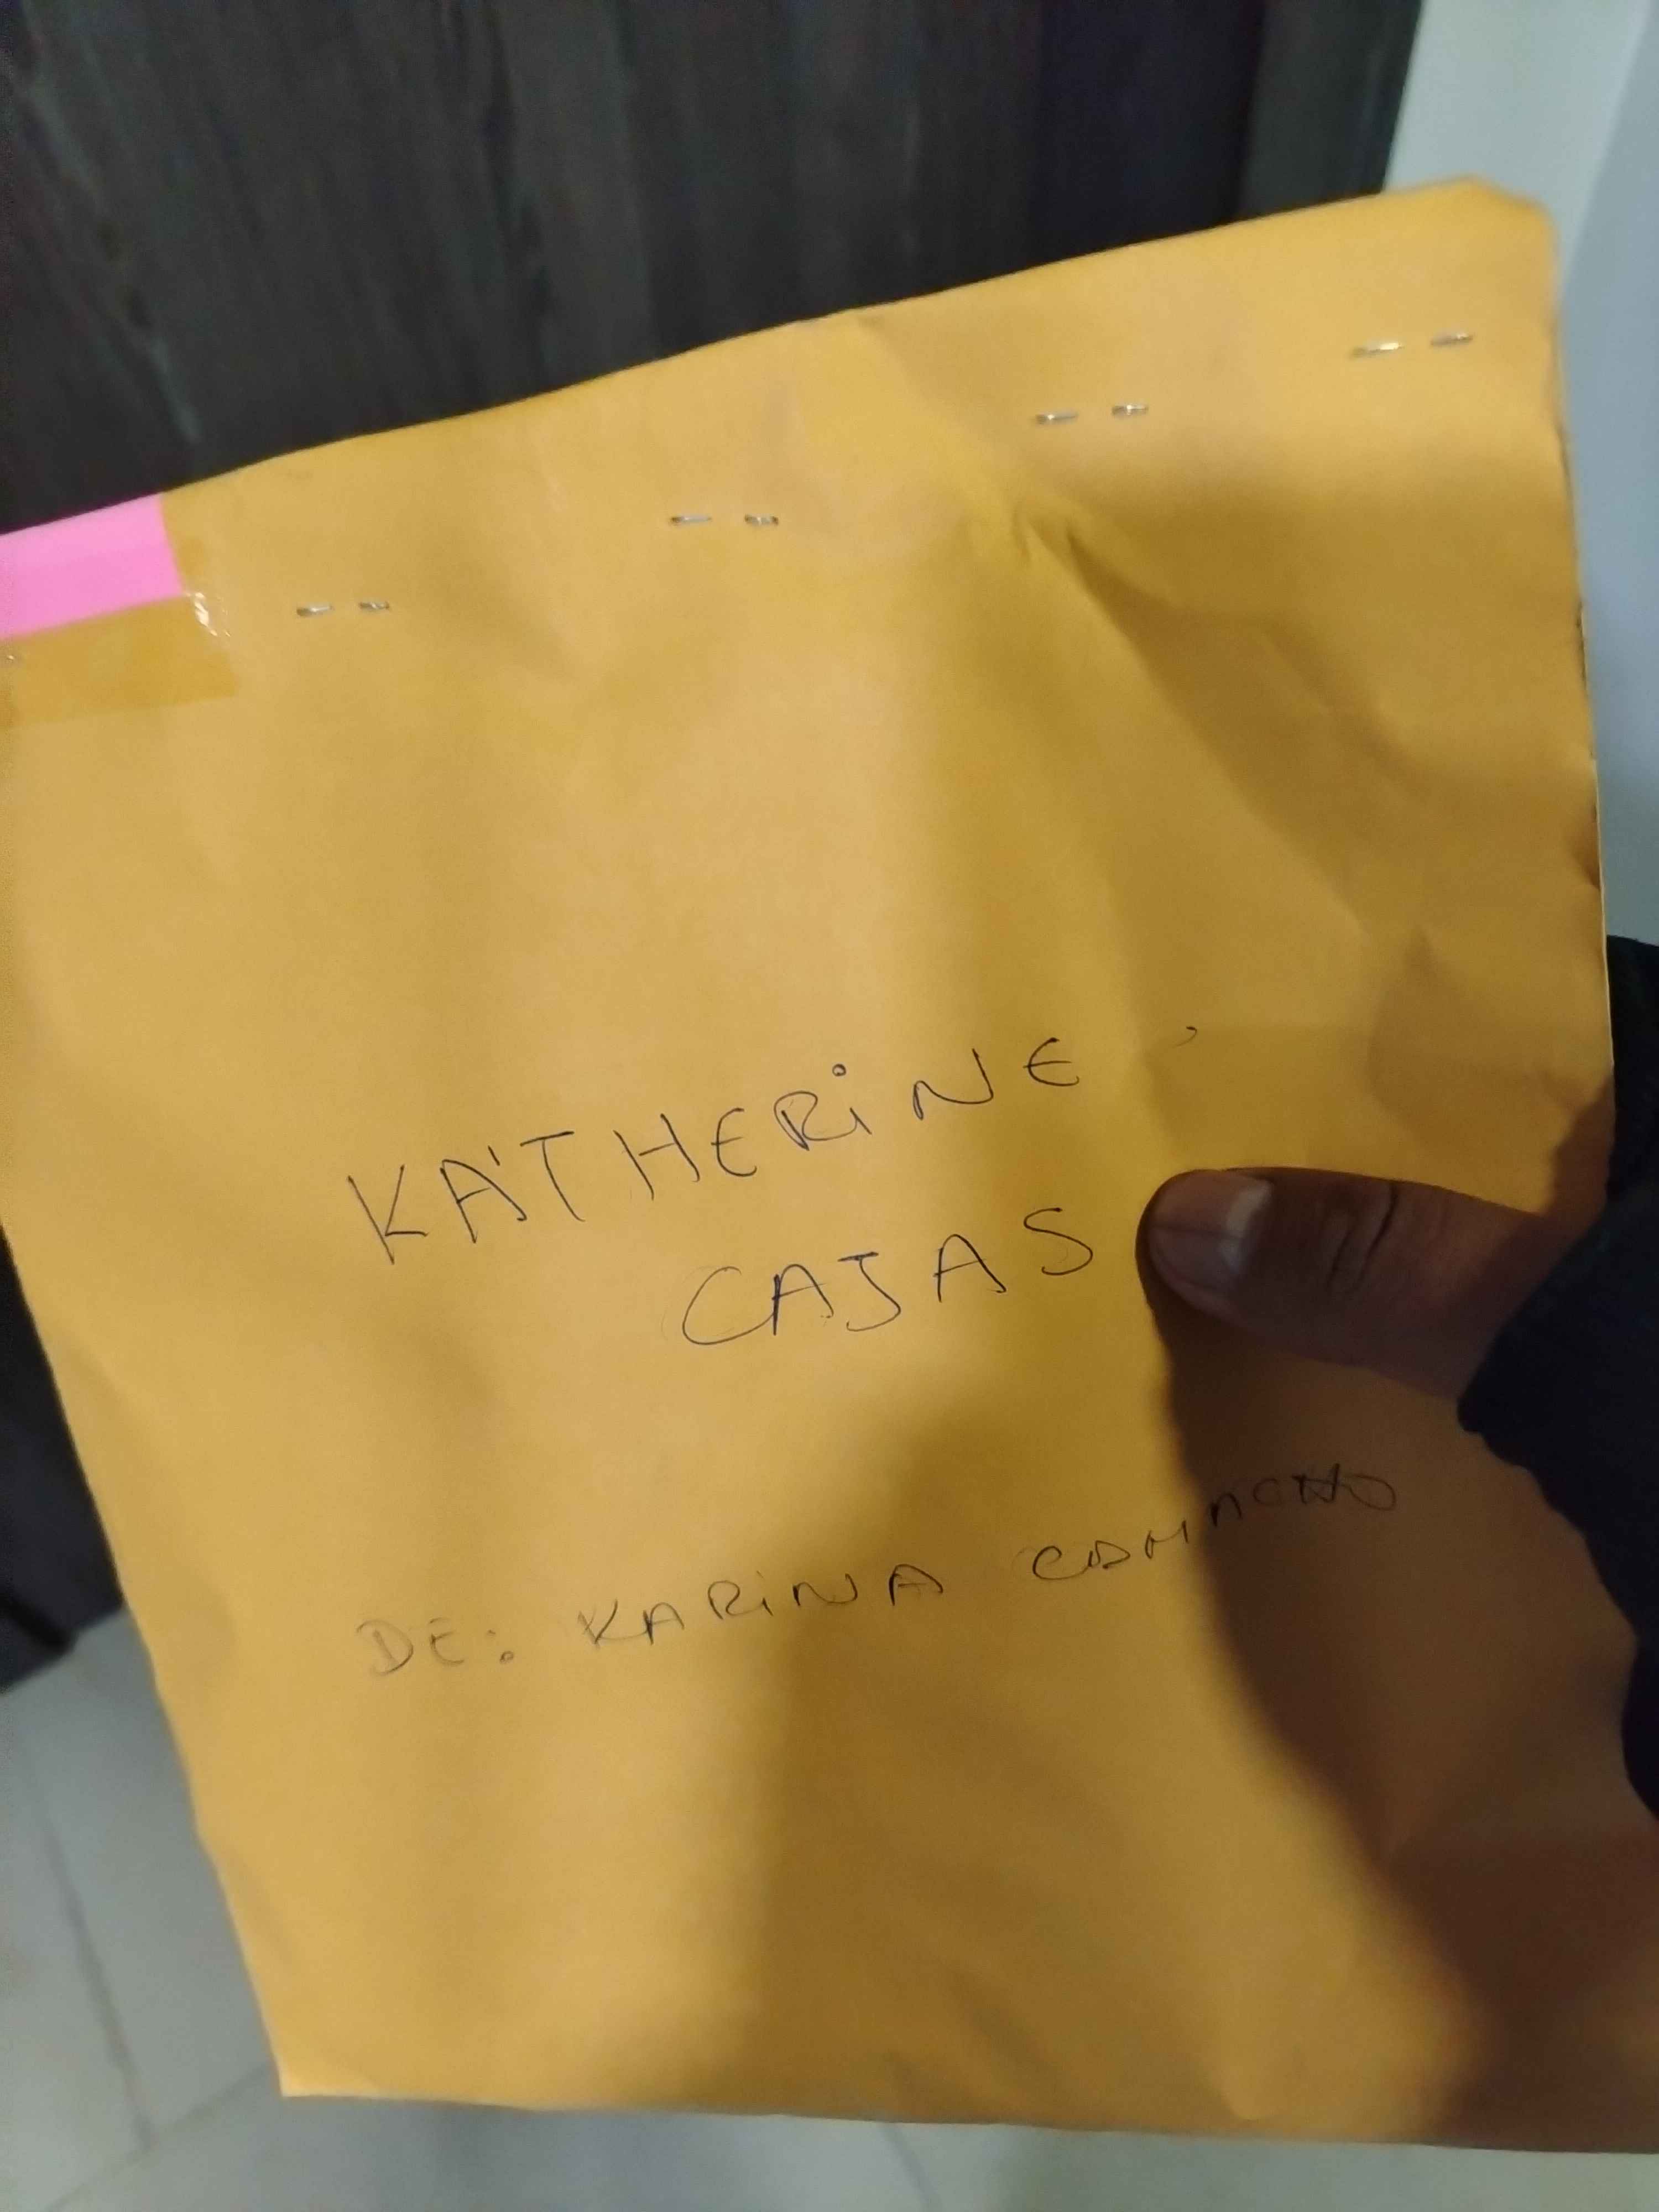 KÁTHERINE
CAJAS
DE: KARINA CAMACHO